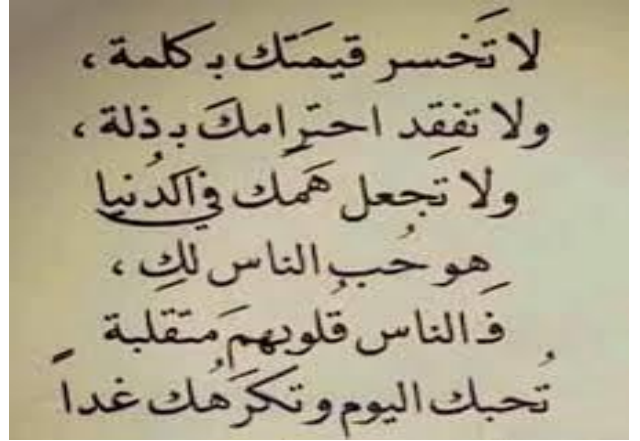 لا تَخسر قيمَتك بـ كلمة ،
ولا تفقِد احترامكَ بـ ذلة ،
ولا تَجعل هَمك في الدُنيا
هو حُب الناس لكِ ،
فَـ الناس قُلوبهم مَتقلبة
تُحبك اليوم وتكَرَهُك غداً